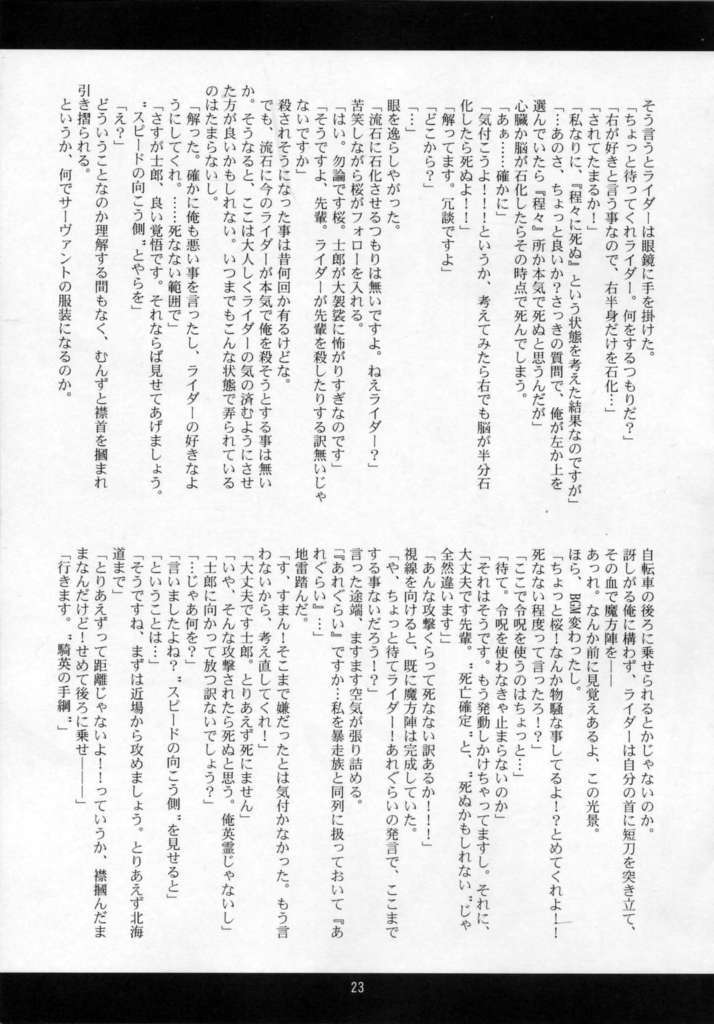 そう言うとライダーは眼鏡に手を掛けた。
「ちょっと待ってくれライダー。何をするつもりだ？」
「右が好きと言う事なので、右半身だけを石化…」
「されてたまるか！」
「私なりに、『程々に死ぬ』という状態を考えた結果なのですが」
「…あのさ、ちょっと良いか？さっきの質問で、俺が左か上を
選んでいたら『程々』所か本気で死ぬと思うんだが」
心臓か脳が石化したらその時点で死んでしまう。
「あぁ……確かに」
「気付こうよ！！！というか、考えてみたら右でも脳が半分石
化したら死ぬよ！！」
「解ってます。冗談ですよ」
「どこから？」
「…」
眼を逸らしやがった。
「流石に石化させるつもりは無いですよ。ねえライダー？」
苦笑しながら桜がフォローを入れる。
「はい。勿論です桜。士郎が大袈裟に怖がりすぎなのです」
「そうですよ、先輩。ライダーが先輩を殺したりする訳無いじゃ
ないですか」
殺されそうになった事は昔何回か有るけどな。
でも、流石に今のライダーが本気で俺を殺そうとする事は無い
か。そうなると、ここは大人しくライダーの気の済むようにさせ
た方が良いかもしれない。いつまでもこんな状態で弄られている
のはたまらないし。
「解った。確かに俺も悪い事を言ったし、ライダーの好きなよ
うにしてくれ。……死なない範囲で」
「さすが士郎、良い覚悟です。それならば見せてあげましょう。
〝スピードの向こう側〟とやらを」
「え？」
どういうことなのか理解する間もなく、むんずと襟首を掴まれ
引き摺られる。
というか、何でサーヴァントの服装になるのか。
自転車の後ろに乗せられるとかじゃないのか。
訝しがる俺に構わず、ライダーは自分の首に短刀を突き立て、
その血で魔方陣を――
あっれ。なんか前に見覚えあるよ、この光景。
ほら、BGM変わったし。
「ちょっと桜！なんか物騒な事してるよ！？とめてくれよ！！
死なない程度って言ったろ！？」
「ここで令呪を使うのはちょっと…」
「待て。令呪を使わなきゃ止まらないのか」
「それはそうです。もう発動しかけちゃってますし。それに、
大丈夫です先輩。〝死亡確定〟と、〝死ぬかもしれない〟じゃ
全然違います」
「あんな攻撃くらって死なない訳あるか！！！」
視線を向けると、既に魔方陣は完成していた。
「や、ちょっと待てライダー！あれぐらいの発言で、ここまで
する事ないだろう！？」
言った途端、ますます空気が張り詰める。
「『あれぐらい』ですか…私を暴走族と同列に扱っておいて『あ
れぐらい』…」
地雷踏んだ。
「す、すまん！そこまで嫌だったとは気付かなかった。もう言
わないから、考え直してくれ！」
「大丈夫です士郎。とりあえず死にません」
「いや、そんな攻撃されたら死ぬと思う。俺英霊じゃないし」
「士郎に向かって放つ訳ないでしょう？」
「…じゃあ何を？」
「言いましたよね？〝スピードの向こう側〟を見せると」
「ということは…」
「そうですね、まずは近場から攻めましょう。とりあえず北海
道まで」
「とりあえずって距離じゃないよ！！っていうか、襟掴んだま
まなんだけど！せめて後ろに乗せ―――」
「行きます。〝騎英の手綱〟」
23